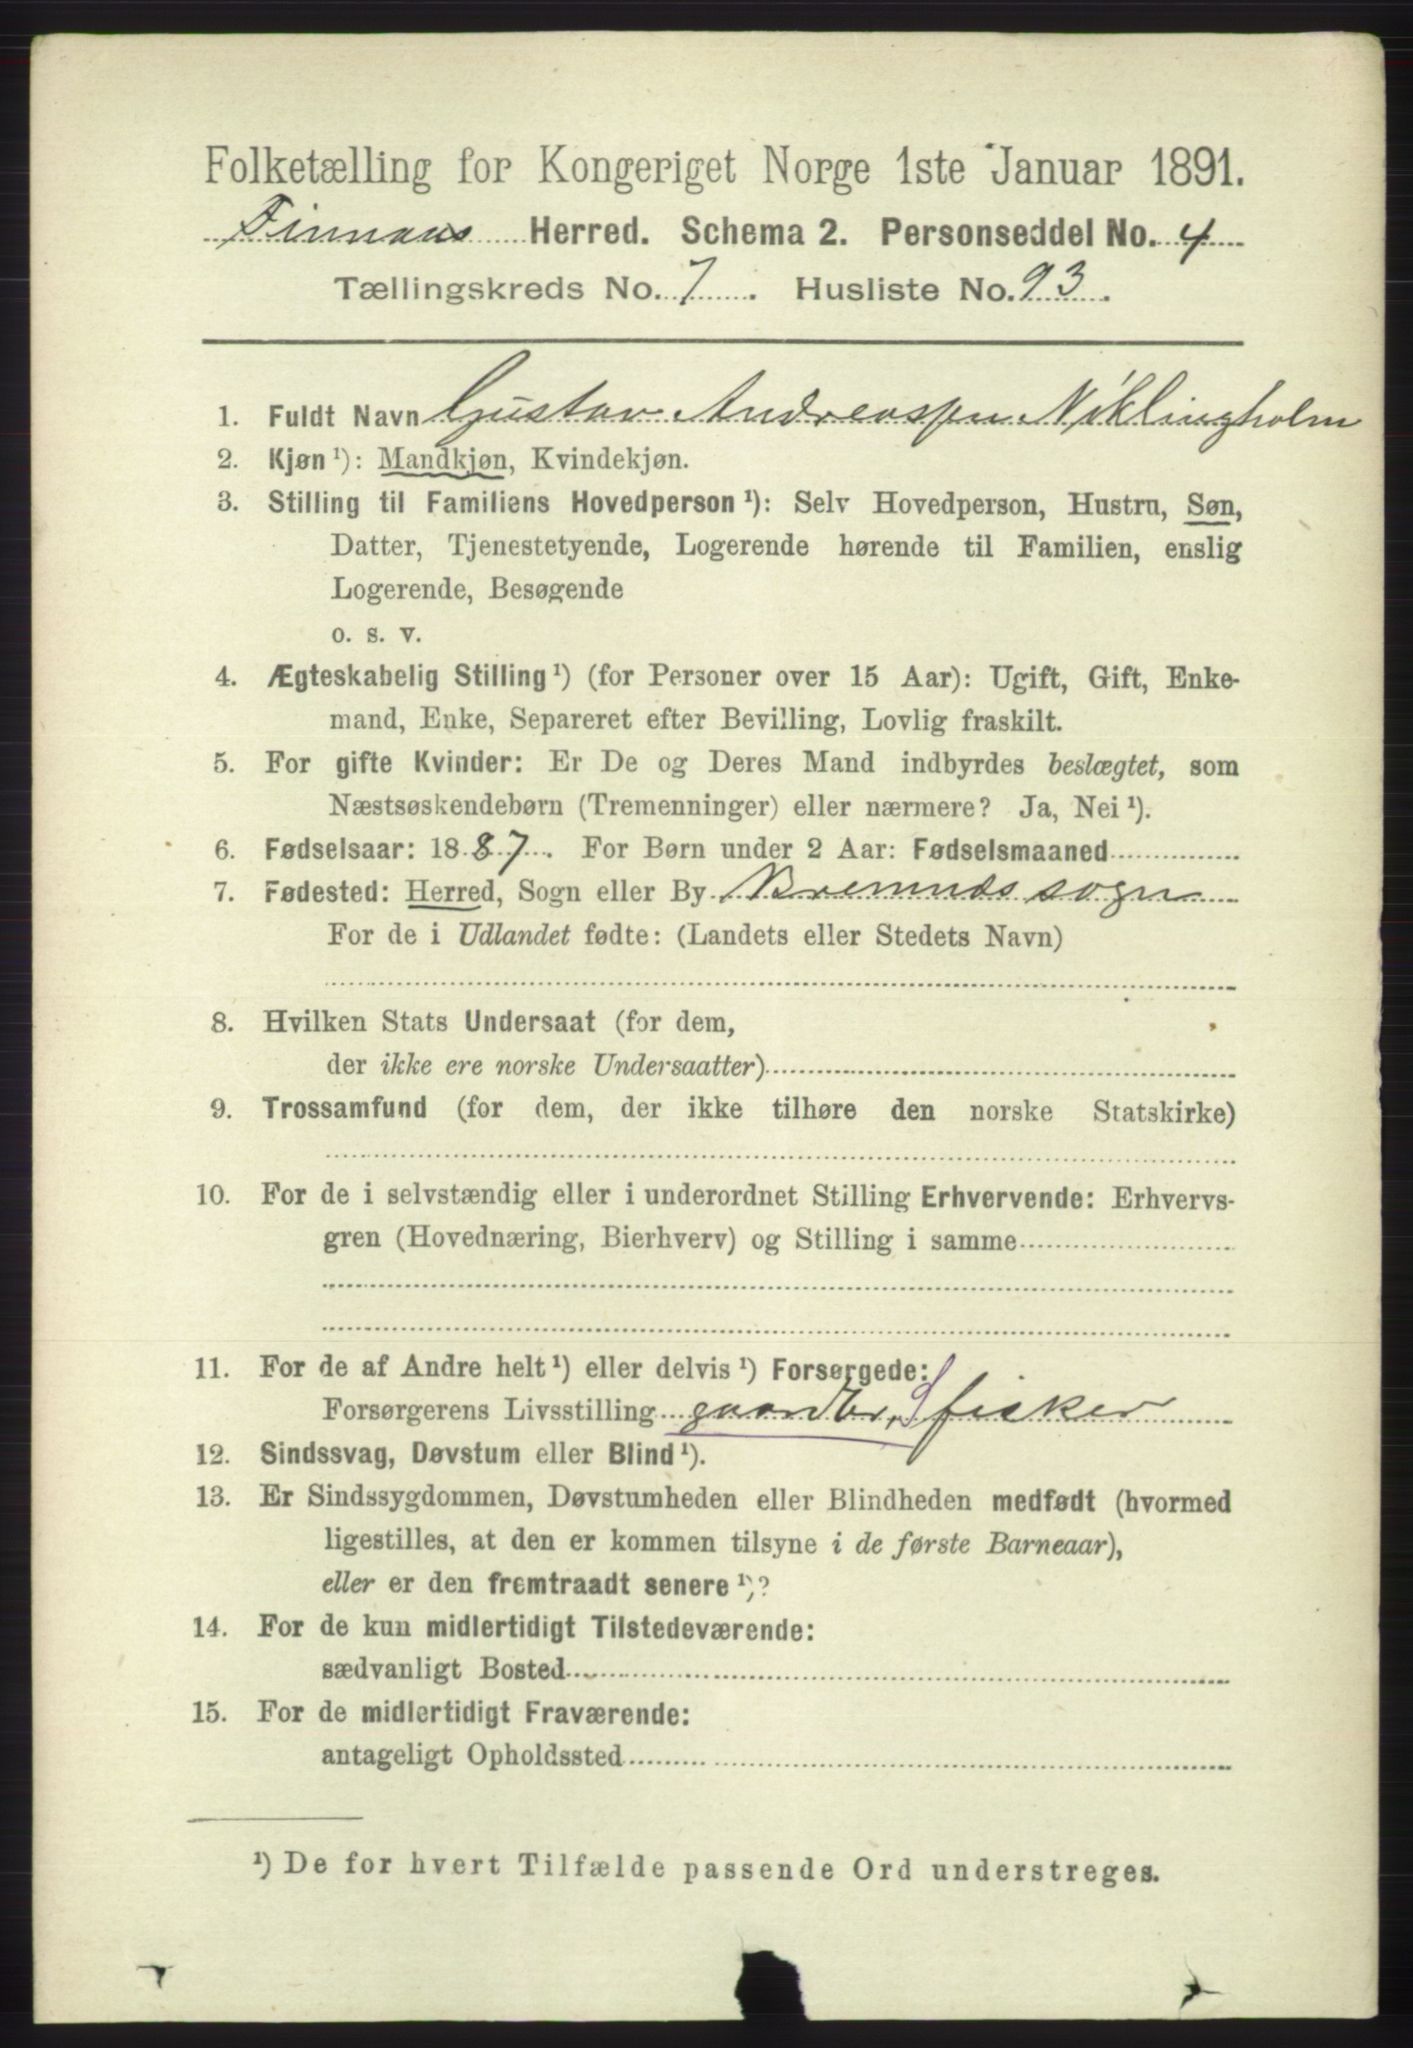 Folketælling for Kongeriget Norge 1ste Januar 1891.
Finnaas Herred. Schema 2. Personseddel No. 4
Tællingskreds No. 7. Husliste No. 93.
1. Fuldt Navn Gustav Andreassen Niklingholm
2. Kjøn ¹): Mandkjøn, Kvindekjøn.
3. Stilling til Familiens Hovedperson ¹): Selv Hovedperson, Hustru, Søn,
Datter, Tjenestetyende, Logerende hørende til Familien, enslig
Logerende, Besøgende
o. s. v.
4. Ægteskabelig Stilling ¹) (for Personer over 15 Aar): Ugift, Gift, Enke-
mand, Enke, Separeret efter Bevilling, Lovlig fraskilt.
5. For gifte Kvinder: Er De og Deres Mand indbyrdes beslægtet, som
Næstsøskendebørn (Tremenninger) eller nærmere? Ja, Nei ¹).
6. Fødselsaar: 1887. For Børn under 2 Aar: Fødselsmaaned
7. Fødested: Herred, Sogn eller By Bremnds sogn
For de i Udlandet fødte: (Landets eller Stedets Navn)
8. Hvilken Stats Undersaat (for dem,
der ikke ere norske Undersaatter)
9. Trossamfund (for dem, der ikke tilhøre den norske Statskirke)
10. For de i selvstændig eller i underordnet Stilling Erhvervende: Erhvervs-
gren (Hovednæring, Bierhverv) og Stilling i samme
11. For de af Andre helt ¹) eller delvis ¹) Forsørgede:
Forsørgerens Livsstilling gaardbr, S fisker
12. Sindssvag, Døvstum eller Blind ¹).
13. Er Sindssygdommen, Døvstumheden eller Blindheden medfødt (hvormed
ligestilles, at den er kommen tilsyne i de første Barneaar),
eller er den fremtraadt senere ¹)?
14. For de kun midlertidigt Tilstedeværende:
sædvanligt Bosted
15. For de midlertidigt Fraværende:
antageligt Opholdssted
¹) De for hvert Tilfælde passende Ord understreges.